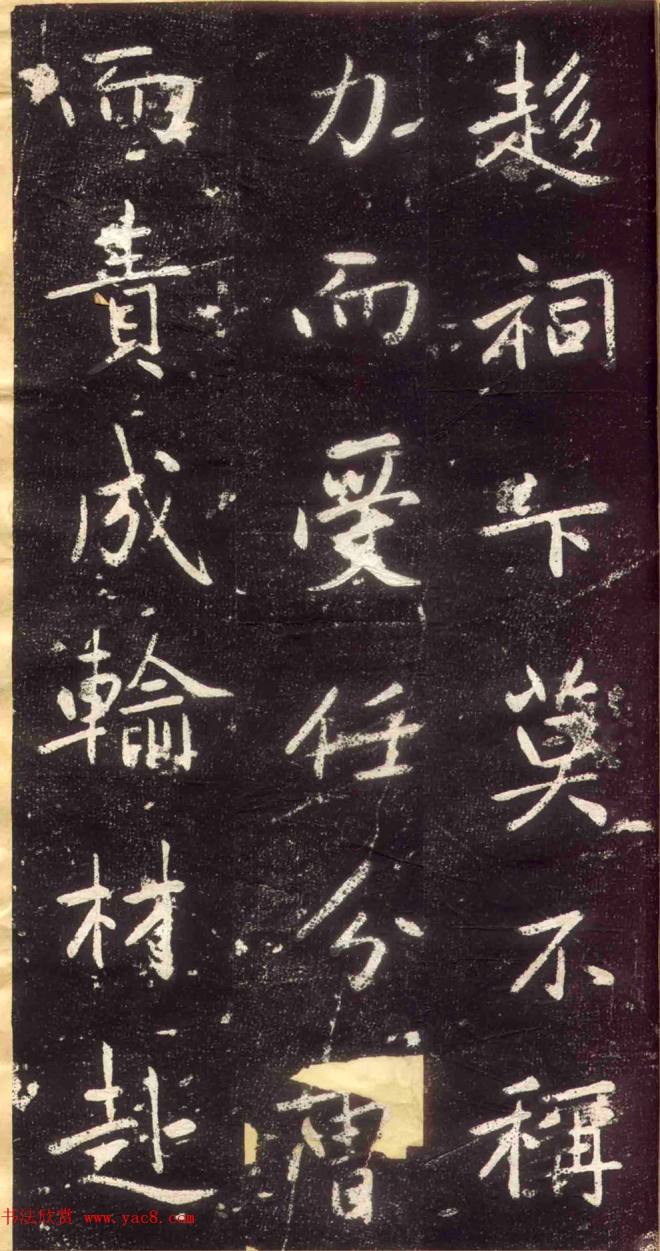 趍祠下莫不稱
力而受任分曹
而責成輪材赴
书法欣赏 www.yac8.com